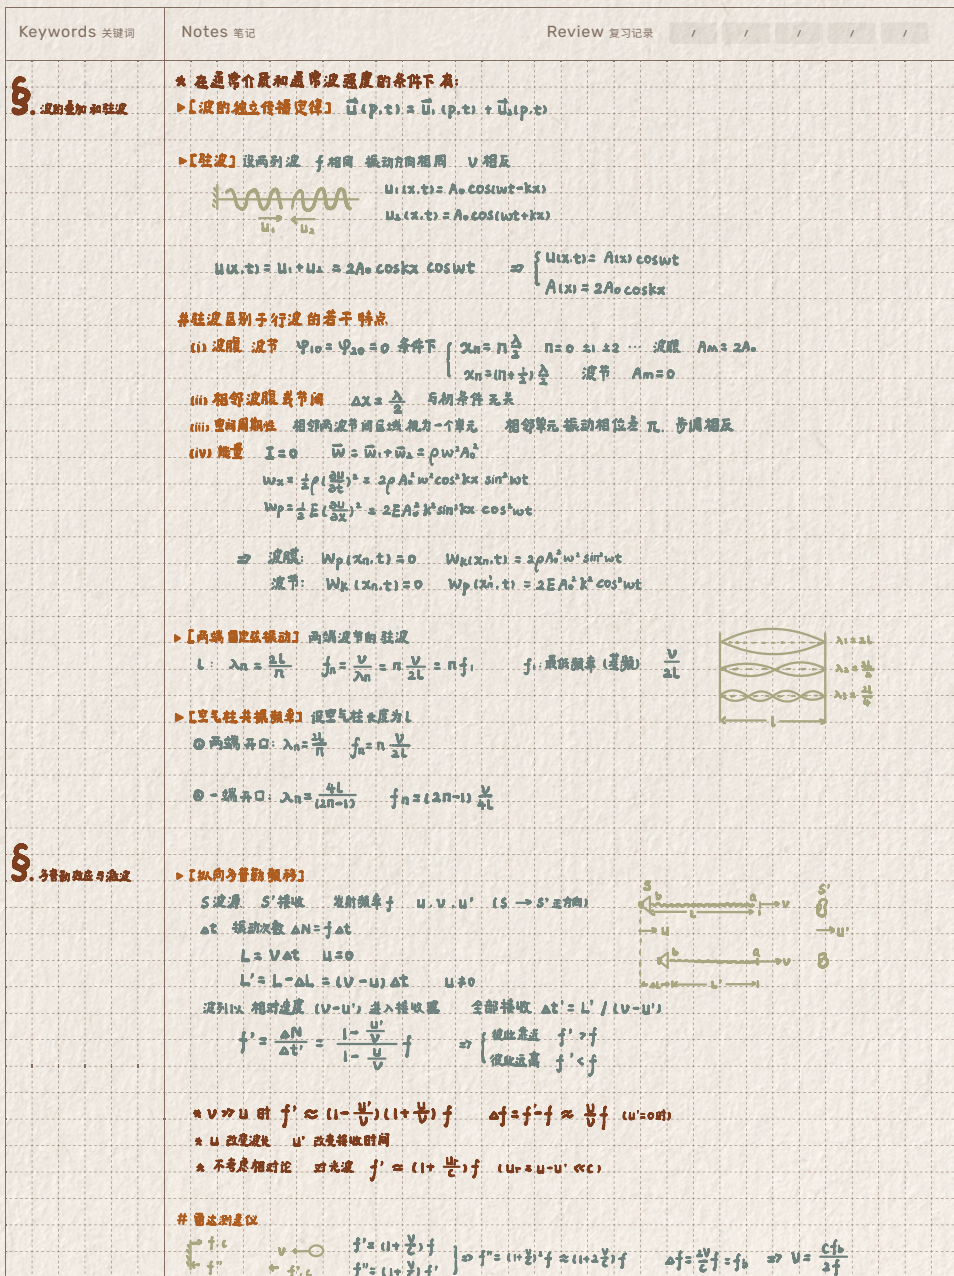 Keywords 关键词 Notes 笔记 Review 复习记录 / / / / /
§. 波的叠加和驻波
* 在通常介质和通常波强度的条件下有:
▸[波的独立传播定律] u⃗(p,t) = u⃗₁(p,t) + u⃗₂(p,t)
▸[驻波] 设两列波 f相同 振动方向相同 v相反
u₁(x,t) = A₀cos(wt-kx)
u₂(x,t) = A₀cos(wt+kx)
u₁ u₂
u(x,t) = u₁+u₂ = 2A₀coskx coswt ⇒ { u(x,t) = A(x) coswt
A(x) = 2A₀coskx
#驻波区别于行波的若干特点
(i) 波腹 波节 φ₁₀=φ₂₀=0 条件下 { xₙ = n λ/2 n=0 ±1 ±2 ⋯ 波腹 Am=2A₀
xₙ=(n+1/2) λ/2 波节 Am=0
(ii) 相邻波腹或节间 Δx = λ/2 与初条件无关
(iii) 空间周期性 相邻两波节间区域视为一个单元 相邻单元振动相位差π. 步调相反
(iv) 能量 I=0 w̄ = w̄₁+w̄₂ = ρw²A₀²
Wk = 1/2 ρ(∂u/∂t)² = 2ρA₀²w²cos²kx sin²wt
Wp = 1/2 E(∂u/∂x)² = 2EA₀²k²sin²kx cos²wt
⇒ 波腹: Wp(xₙ,t)=0 Wk(xₙ,t) = 2ρA₀²w²sin²wt
波节: Wk(xₙ,t)=0 Wp(xₙ,t) = 2EA₀²k²cos²wt
▸[两端固定弦振动] 两端波节的驻波
L: λₙ = 2L/n fₙ = v/λₙ = n v/2L = nf₁ f₁:最低频率(基频) v/2L
λ₁=2L
λ₂=
λ₃=
L
▸[空气柱共振频率] 设空气柱长度为L
① 两端开口: λₙ = 2L/n fₙ = n v/2L
② 一端开口: λₙ = 4L/(2n-1) fₙ=(2n-1) v/4L
§. 多普勒效应与激波
▸[纵向多普勒频移]
S波源 S'接收 发射频率f u.v.u' (S → S'正方向)
S b a v S'
L
u u'
b a v
ΔL L'
Δt 振动次数 ΔN=fΔt
L = vΔt u=0
L' = L-ΔL = (v-u)Δt u≠0
波列以相对速度 (v-u') 进入接收器 全部接收 Δt' = L'/(v-u')
f' = ΔN/Δt' = (1-u'/v)/(1-u/v) f ⇒ { 彼此靠近 f'>f
彼此远离 f'<f
* v≫u 时 f' ≈ (1-u'/v)(1+u/v) f Δf=f'-f ≈ u/v f (u'=0时)
* u 改变波长 u' 改变接收时间
* 不考虑相对论 对光波 f' ≈ (1+ur/c) f (ur=u-u' ≪c)
# 雷达测速仪
f.c v f'=(1+v/c) f
f'' f'.c f''=(1+v/c) f' } ⇒ f''=(1+v/c)²f ≈(1+2v/c)f Δf=2v/c f=fb ⇒ v = cfb/2f